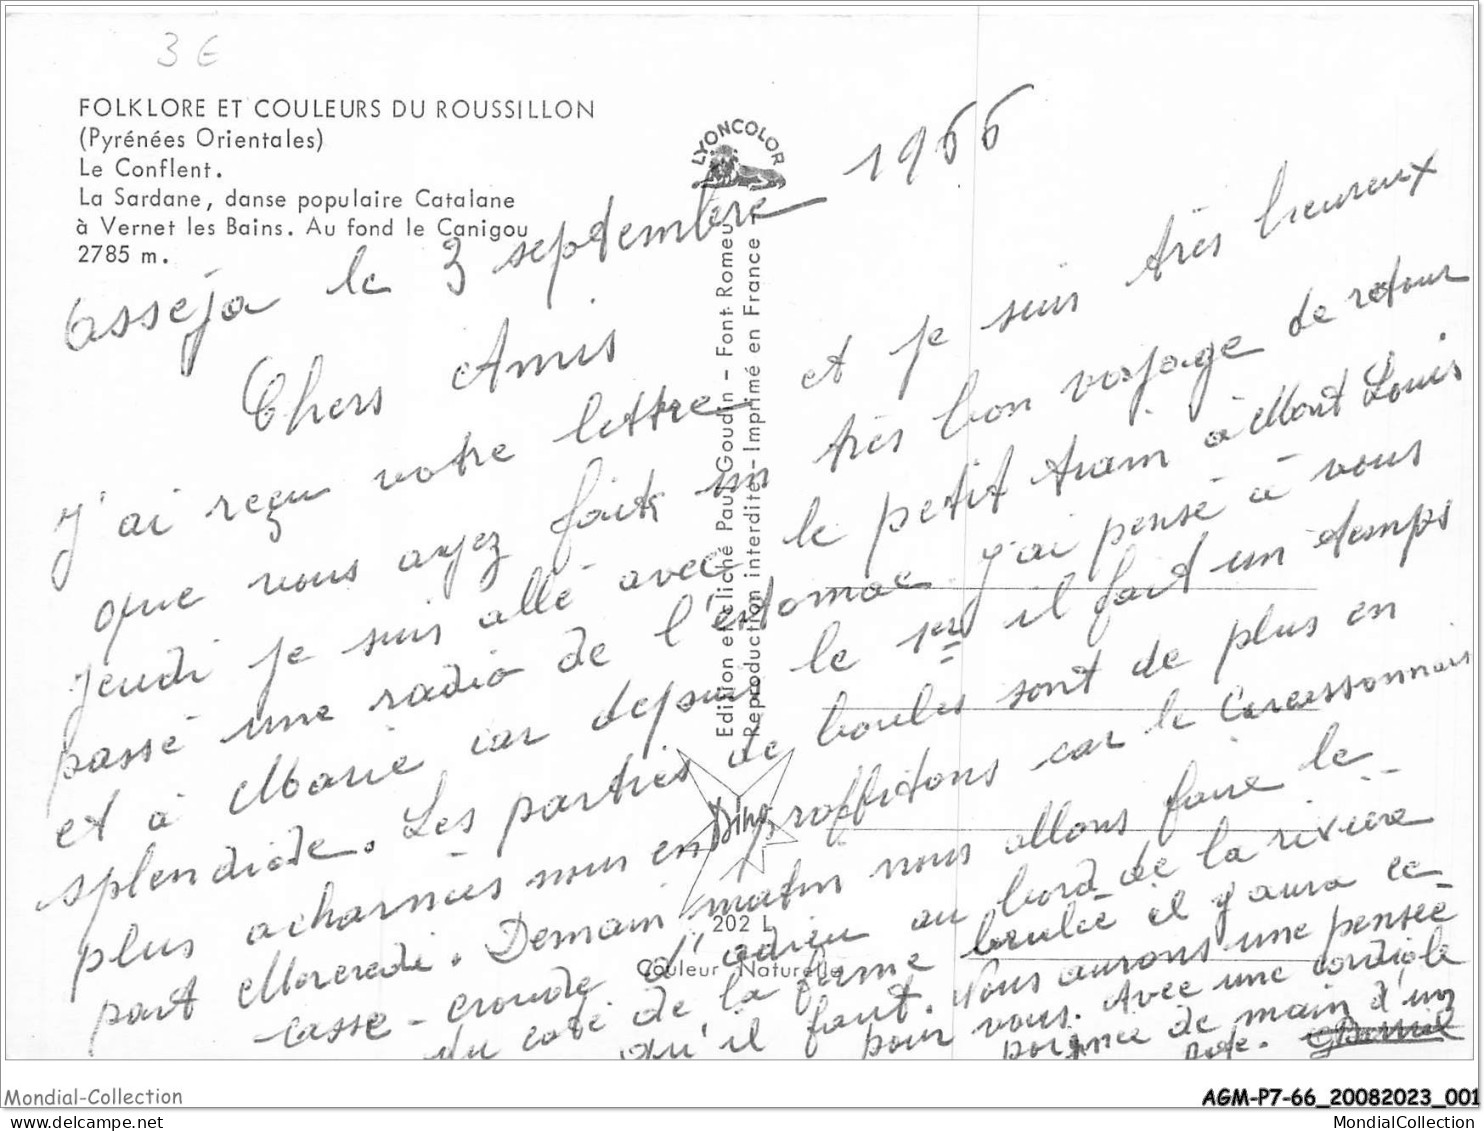 3 €
FOLKLORE ET COULEURS DU ROUSSILLON
(Pyrénées Orientales)
Le Conflent.
La Sardane, danse populaire Catalane
à Vernet les Bains. Au fond le Canigou
2785 m.
LYONCOLOR
Osséja le 3 septembre 1966
Chers Amis
J'ai reçu votre lettre et je suis très heureux
que vous ayez fait un très bon voyage de retour
jeudi je suis allé avec le petit train à Mont Louis
passé une radio de l'estomac j'ai pensé à vous
et à Marie car depuis le 1er il fait un temps
splendide. Les parties de boules sont de plus en
plus acharnées nous en proffitons car le Carcassonnais
part Mercredi. Demain matin nous allons faire le
casse-croude d'adieu au bord de la rivière
du coté de la ferme brulée il y aura ce
qu'il faut. Nous aurons une pensée
pour vous. Avec une cordiale
poignée de main d'un
pote.
Edition et cliché Paul Goudin - Font-Romeu
Reproduction interdite - Imprimé en France
Dino
202 L
Couleur Naturelle
Mondial-Collection
AGM-P7-66_20082023_001
MondialCollection